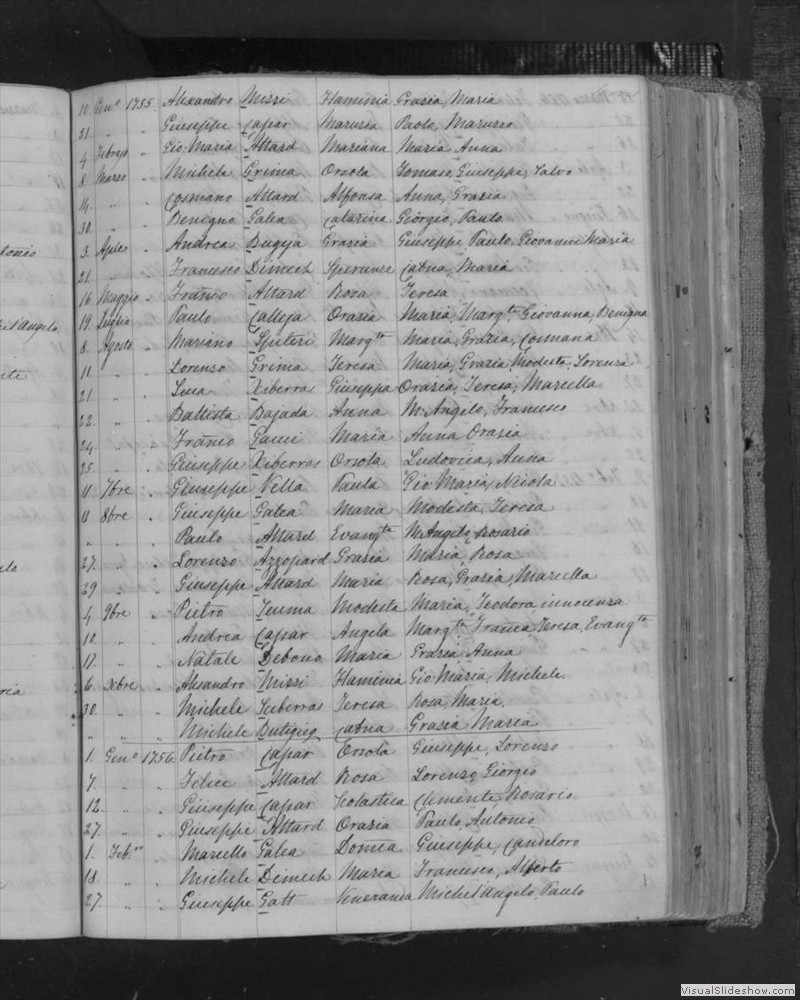 tonio
el'Angelo
nte
ela
ria
10 Genº 1755. Alexandro Missi Flaminia Grazia, Maria
21. " " Giuseppe Capar Maruzza Paolo, Maruzzo
4 Febraº " Gio: Maria Attard Mariana Maria Anna
8 Marzo " Michele Grima Orsola Tomaso, Giuseppe, Salvo
14. " " Cosmano Attard Alfonsa Anna, Grazia
30. " " Benigno Galea Catarina Giorgio, Paulo
3. Aple " Andrea Bugeja Grazia Giuseppe, Paulo, Giovanni Maria
21. " " Francesco Dimech Speranza Catna, Maria
16 Maggio " Franco Attard Rosa Teresa
19 Luglio " Paulo Calleja Orazia Maria, Margta, Giovanna, Benigna
8. Agosto " Mariano Spiteri Margta Maria, Grazia, Cosmana
11. " " Lorenzo Grima Teresa Maria, Grazia, Modesta, Lorenza
21. " " Luca Xiberras Giuseppa Orazia, Teresa, Marcella
22. " " Battista Bajada Anna M. Angelo, Francesco
24. " " Franco Gauci Maria Anna Orazia
25. " " Giuseppe Xiberras Orsola Ludovica, Anna
11 7bre " Giuseppe Vella Paula Gio: Maria, Nicola
11 8bre " Giuseppe Galea Maria Modesta, Teresa
" " " Paulo Attard Evangta M. Angelo, Rosario
27. " " Lorenzo Azzopard Grazia Maria, Rosa
29 " " Giuseppe Attard Maria Rosa, Grazia, Marcella
4. 9bre " Pietro Zamma Modesta Maria, Teodora innocenza
10. " " Andrea Capar Angela Margta, Franca, Teresa, Evangta
17. " " Natale Debono Maria Grazia, Anna
6. Xbre " Alesandro Missi Flaminia Gio: Maria, Michele
30. " " Michele Sceberras Teresa Rosa, Maria
" " " Michele Butigieg Catna Grazia Maria
1. Genº 1756. Pietro Capar Orsola Giuseppe, Lorenzo
7. " " Felice Attard Rosa Lorenzo, Giorgio
12. " " Giuseppe Capar Scolastica Clemente, Rosario
27. " " Giuseppe Attard Orazia Paulo, Antonio
1. Feb. " Marcello Galea Domca Giuseppe, Candeloro
18. " " Michele Dimech Maria Francesco, Alberto
27. " " Giuseppe Gatt Veneranda Michel'angelo, Paulo
VisualSlideshow.com